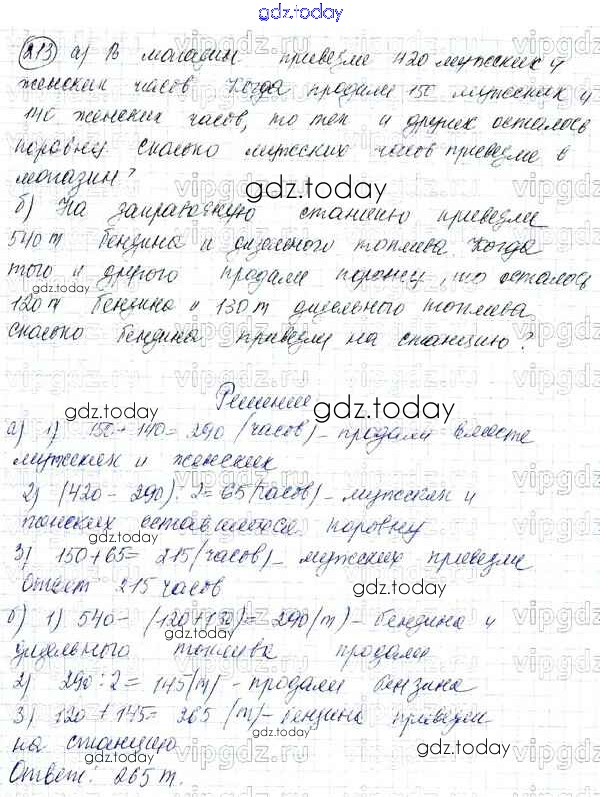 gdz.today
213 а) В магазин привезли 420 мужских и
женских часов. Когда продали 150 мужских и
140 женских часов, то тех и других осталось
поровну сколько мужских часов привезли в
магазин?
gdz.today
б) На заправочную станцию привезли
540 т бензина и дизельного топлива. Когда
того и другого продали поровну, то осталось
120 т бензина и 130 т дизельного топлива
сколько бензина привезли на станцию?
Решение
gdz.today gdz.today
а) 1) 150 + 140 = 290 (часов) - продали вместе
мужских и женских
2) (420 - 290) : 2 = 65 (часов) - мужских и
женских оставшихся поровну
3) 150 + 65 = 215 (часов) - мужских привезли
Ответ 215 часов
gdz.today
б) 1) 540 - (120 + 130) = 290 (т) - бензина и
gdz.today
дизельного топлива продали
2) 290 : 2 = 145 (т) - продали бензина
3) 120 + 145 = 265 (т) - бензина привезли
на станцию
gdz.today
Ответ: 265 т.